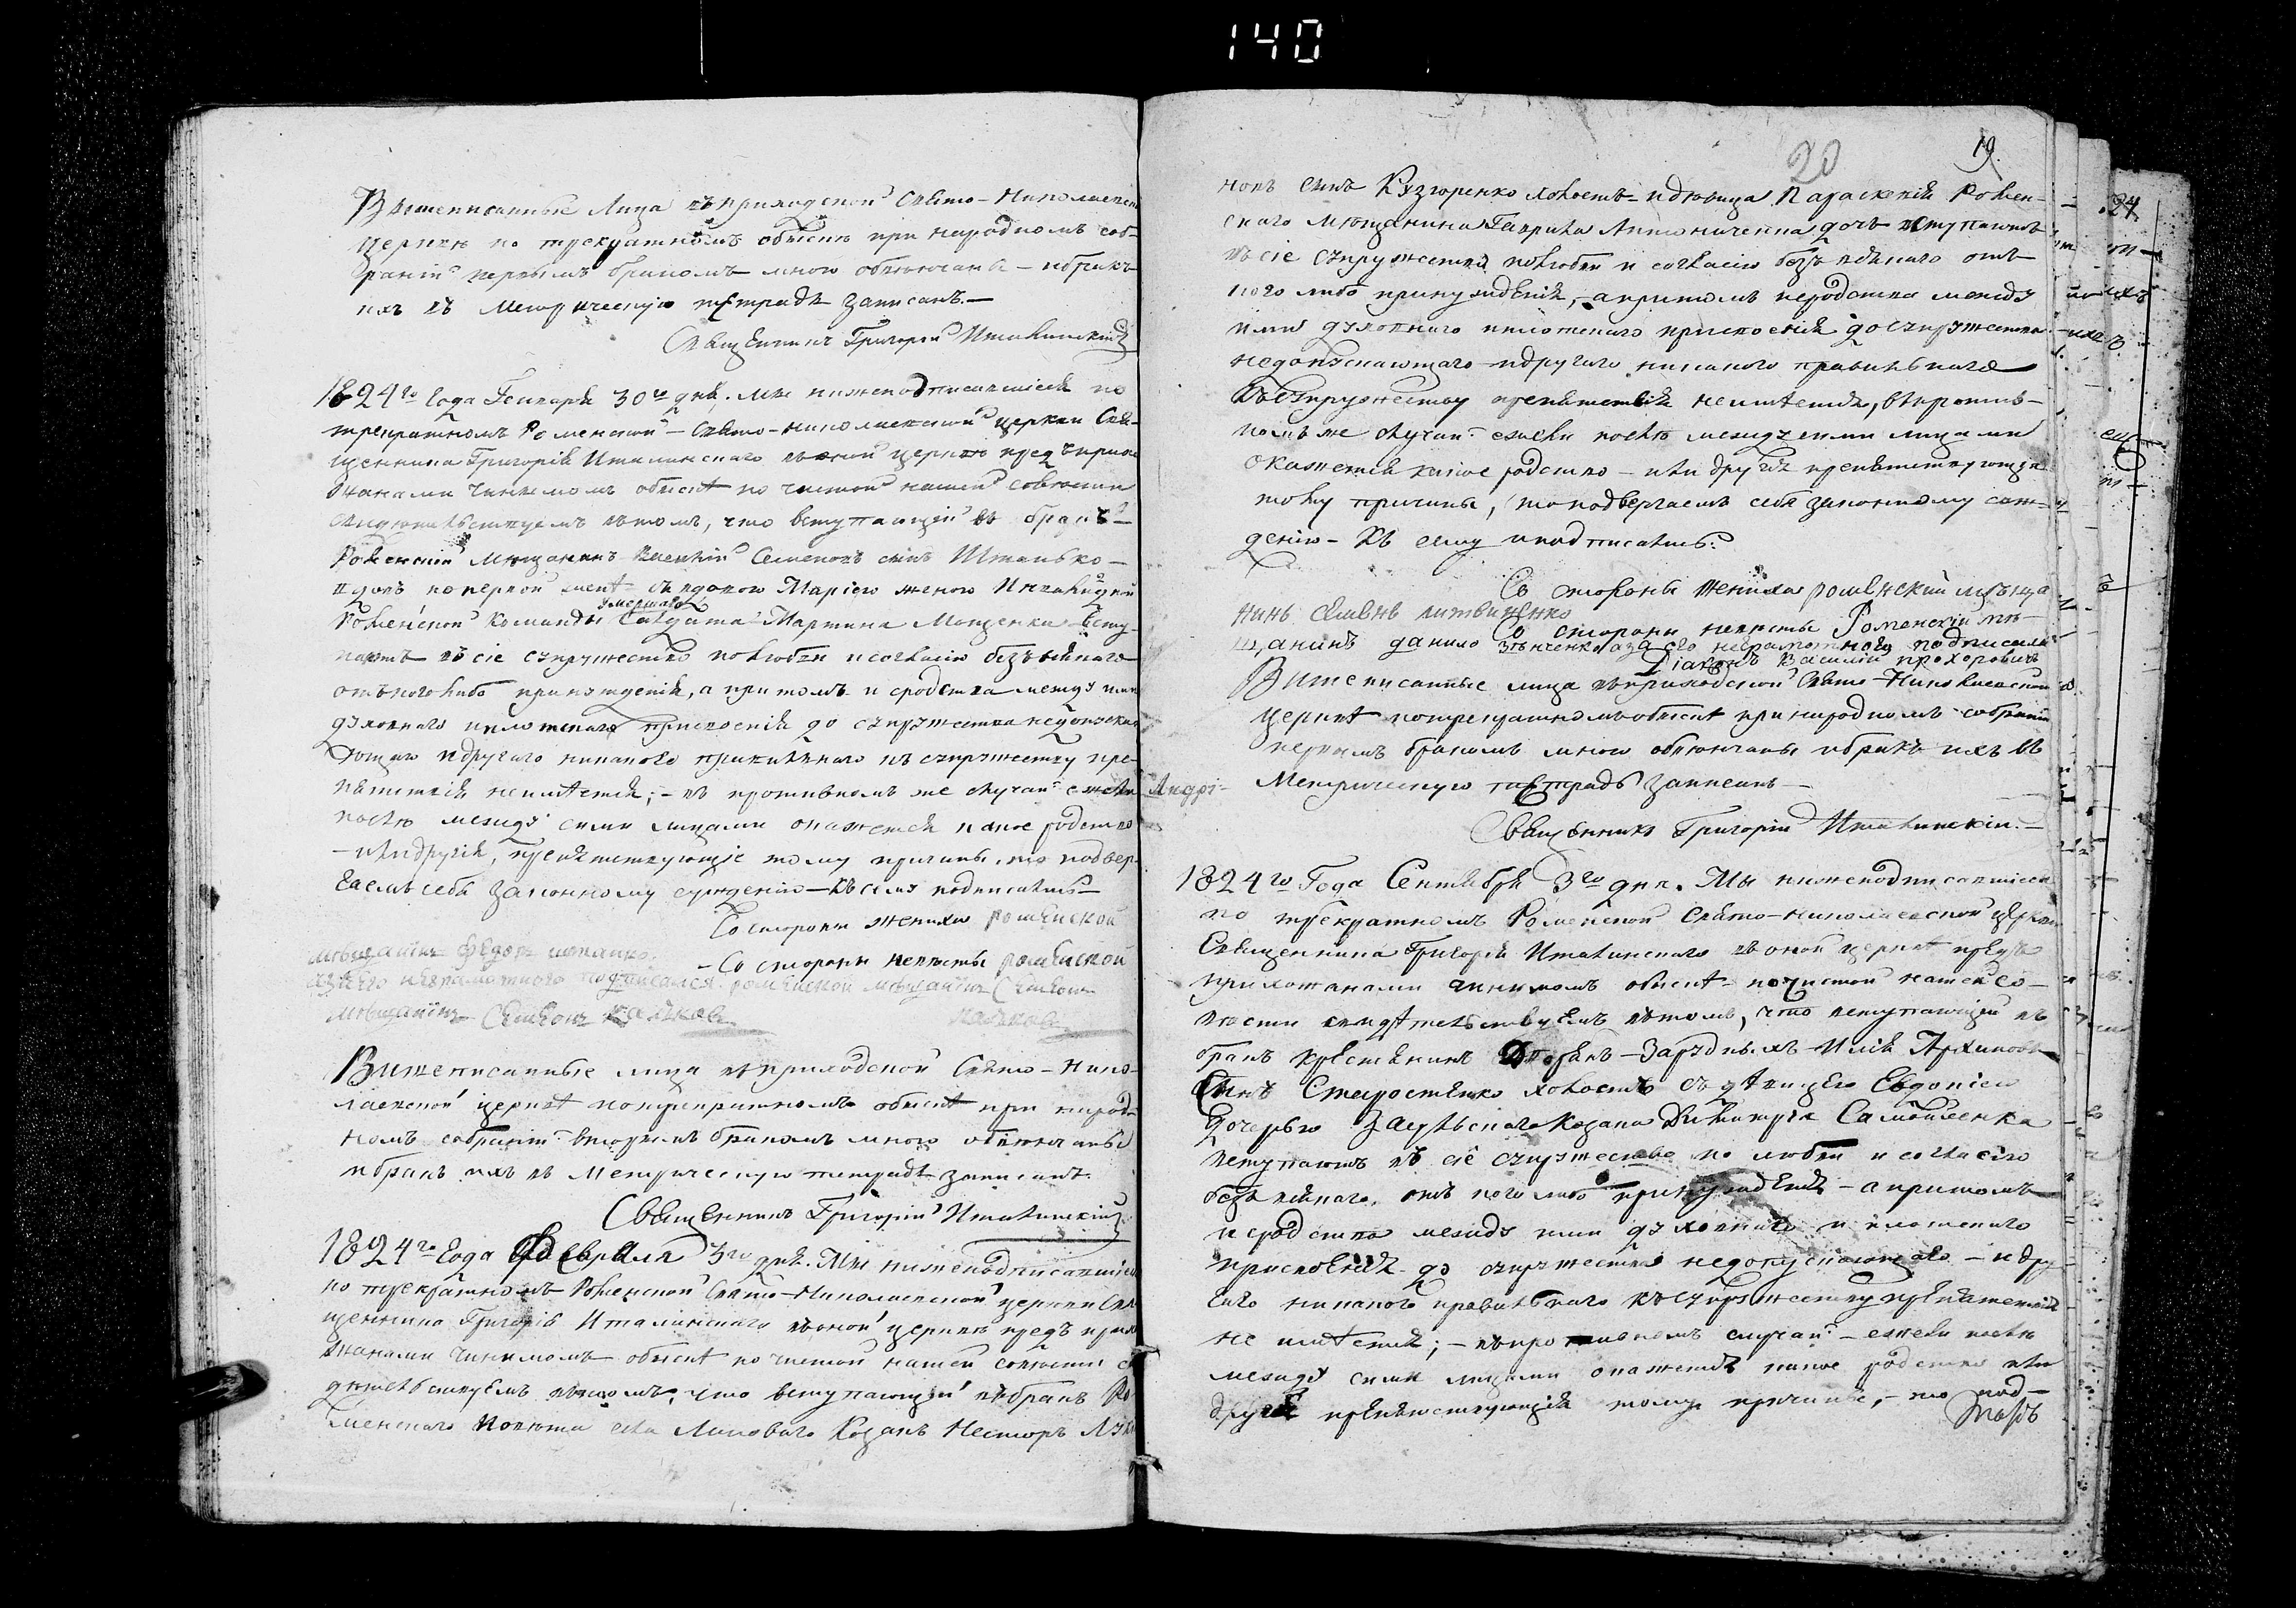 140
Вышеписанные лица въ приходской Свято-Николаевской
церквѣ по трекратномъ обыскѣ при народномъ соб-
раніи первымъ бракомъ мною обвѣнчаны – и бракъ
ихъ въ Метрическую тетрадь записанъ. –
Священникъ Григорій Италинскій
1824го Года Генваря 30го дня. Мы нижеподписавшіеся по
трекратномъ Роменской – Свято-Николаевской церкви Свя-
щенника Григорія Италинскаго въ оной церквѣ предъ прихо
жанами чинимомъ обыскѣ по чистой нашей совѣсти
свидѣтельствуемъ въ томъ, что вступающій въ бракъ –
Роменскій мѣщанинъ Семеновъ сынъ –
вдовъ по первой женѣ съ вдовою Маріею женою Инвалидной
Роменской Команды умершаго Салдата Мартина Мощенка всту-
паютъ въ сіе супружество по любви и согласію безъ всякаго
отъ кого либо принужденія, а притомъ и сродства между ими
духовнаго и плотскаго присвоенія до супружества недопуска
ющаго и другаго никакого правильнаго къ супружеству пре-
пятствія неимѣется; – въ противномъ же случаи ежели
послѣ между сими лицами окажется какое родство
– или другія, препятствующіе тому причины, то подвер-
гаемъ себя законному сужденію – въ семъ подписались –
Со стороны жениха роменской
мѣщанинъ Федоръ
– Со стороны невѣсты роменской
неграмотного подписался роменской мѣщанинъ Симеонъ
мѣщанинъ Симеонъ
Вышеписанные лица въ приходской Свято-Нико-
лаевской церквѣ по трекратномъ обыскѣ при народ-
номъ собраніи вторымъ бракомъ мною обвѣнчаны
и бракъ ихъ въ Метрическую тетрадь записанъ.
Священникъ Григорій Италинскій
1824го Года Февраля 3го дня. Мы нижеподписавшіеся
по трекратномъ Роменской Свято-Николаевской церкви Свя
щенника Григорія Италинскаго въ оной церквѣ предъ прихо
жанами чинимомъ обыскѣ по чистой нашей совѣсти сви
дѣтельствуемъ въ томъ, что вступающій въ бракъ Ро
менскаго Повѣта села Липоваго Козакъ Несторъ
20
19.
новъ сынъ холостъ – и дѣвица Параскевія Ромен-
скаго мѣщанина Гаврила дочь вступаютъ
въ сіе супружество по любви и согласію безъ всякаго отъ
кого либо принужденія, – а притомъ и сродства между
ими духовнаго и плотскаго присвоенія до супружества
недопускающаго и другаго никакого правильнаго
къ супружеству препятствія неимѣется, въ против-
номъ же случаи ежели послѣ между сими лицами
окажется какое родство – или другія препятствующія
тому причины, то подвергаемъ себя законному суж-
денію – въ семъ и подписались.
Со стороны жениха роменский мѣща
нинъ литвиненко
Со стороны невѣсты Роменскій мѣ-
щанинъ данило а за его неграмотного подписался
Діаконъ Василій прохоровичъ
Вышеписанные лица въ приходской Свято-Николаевской
церквѣ по трекратномъ обыскѣ при народномъ собраніи
первымъ бракомъ мною обвѣнчаны и бракъ ихъ въ
Метрическую тетрадь записанъ –
Священникъ Григорій Италинскій. –
1824го Года Сентября 3го дня. Мы нижеподписавшіеся
по трекратномъ Роменской Свято-Николаевской церкви
Священника Григорія Италинскаго въ оной церквѣ предъ
прихожанами чинимомъ обыскѣ – по чистой нашей со-
вѣсти свидѣтельствуемъ въ томъ, что вступающій въ
бракъ крестянинъ – Илія Архиповъ
Сынъ Старостенко холостъ съ дѣвицею Евдокіею
Дочерью Козака Димитрія Самойленка
вступаютъ въ сіе супружество по любви и согласію
безъ всякаго отъ кого либо принужденія – а притомъ
и сродства между ими духовнаго и плотскаго
присвоенія до супружества недопускающаго – и дру
гаго никакого правильнаго къ супружеству препятствія
не имѣется; – въ противномъ случаи – ежели послѣ
между сими лицами окажется какое родство или
другія препятствующія тому причины, – то под-